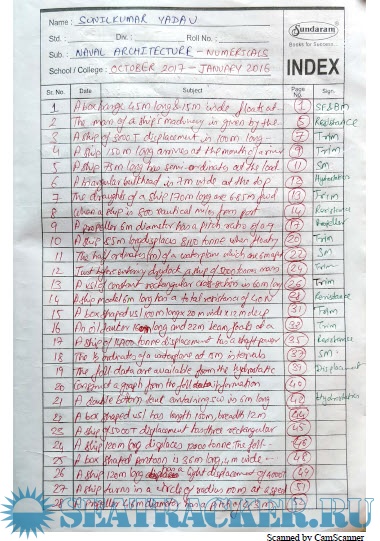 Name : SUNILKUMAR YADAV
Sundaram
Std. : Div. : Roll No. :
Books for Success...
Sub. : NAVAL ARCHITECTURE - NUMERICALS
School / College : OCTOBER 2017 - JANUARY 2018
INDEX
Sr. No. Date Subject Page No. Sign.
1 A box barge 45m long & 15m wide floats at 1 SF&BM
2 The mass of a ship's machinery is given by the 5 Resistance
3 A ship of 5000T displacement is 100m long 7 Trim
4 A ship 150m long arrives at the mouth of a river 9 Trim
5 A ship 75m long has semi-ordinates at the load 11 SM
6 A triangular bulkhead is 7m wide at the top 12 Hydrostatics
7 The draughts of a ship 170m long are 6.85m fwd 13 Trim
8 When a ship is 800 nautical miles from port 14 Resistance
9 A propeller 6m diameter has a pitch ratio of 0.9 17 Propeller
10 A ship 85m long displaces 8100 tonne when floating 20 Trim
11 The half ordinates of a waterplane which are 6m apart 22 SM
12 Just before entering drydock a ship of 5000 tonne mass 24 Trim
13 A vsl of constant rectangular cross-section is 60m long 26 Trim
14 A ship model 6m long has a total resistance of 40N 28 Resistance
15 A box shaped vsl 100m long x 20m wide x 12m deep Trim
16 An oil tanker long and 22m beam floats at a 33 Trim
17 A ship of tonne displacement has a shaft power 35 Resistance
18 The ½ ordinates of a waterplane at 15m intervals 37 SM
19 The foll data are available from the hydrostatic 39 Displacement
20 Construct a graph from the foll data information 40
21 A double bottom tank containing SW is 6m long 42 Hydrostatics
22 A box shaped vsl has length 150m, breadth 12m 44
23 A ship of 5000T displacement has three rectangular 45
24 A ship 100m long displaces 10000 tonne. The foll 46
25 A box shaped pontoon is 36m long, 4m wide 48
26 A ship 120m long has a light displacement of 4000T 49
27 A ship turns in a circle of radius 100m at a speed 51
28 A propeller 4.6m diameter has a pitch of 4.3m
SEATRACKER.RU
Scanned by CamScanner